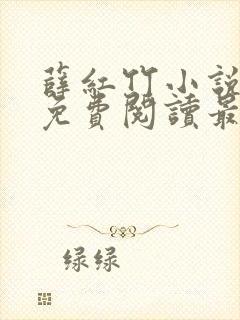 薛紅竹小說
免費閱讀最
绿绿